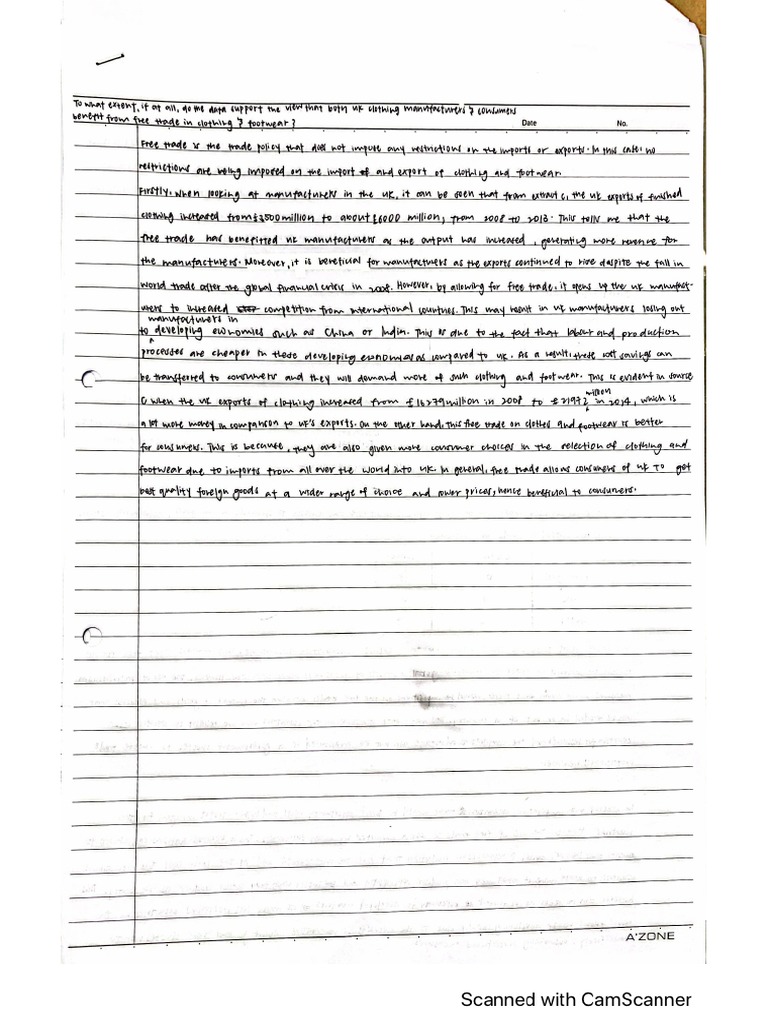 To what extent, if at all, do the data support the view that both UK clothing manufacturers & consumers
benefit from free trade in clothing & footwear?
Date No.
Free trade is the trade policy that does not impose any restrictions on the imports or exports. In this case, no
restrictions are being imposed on the import and export of clothing and footwear.
Firstly, when looking at manufacturers in the UK, it can be seen that from extract C, the UK exports of finished
clothing increased from £3500 million to about £6000 million, from 2008 to 2013. This tells me that the
free trade has benefitted UK manufacturers as the output has increased, generating more revenue for
the manufacturers. Moreover, it is beneficial for manufacturers as the exports continued to rise despite the fall in
world trade after the global financial crisis in 2008. However, by allowing for free trade, it opens up the UK manufact-
urers to increased competition from international countries. This may result in UK manufacturers losing out
manufacturers in
to developing economies such as China or India. This is due to the fact that labour and production
processes are cheaper in these developing economies as compared to UK. As a result, these cost savings can
be transferred to consumers and they will demand more of such clothing and footwear. This is evident in source
million
C when the UK exports of clothing increased from £16279 million in 2008 to £21972 in 2014, which is
a lot more money in comparison to UK's exports. On the other hand, this free trade on clothes and footwear is better
for consumers. This is because, they are also given more consumer choices in the selection of clothing and
footwear due to imports from all over the world into UK. In general, free trade allows consumers of UK to get
best quality foreign goods at a wider range of choice and lower prices, hence beneficial to consumers.
A'ZONE
Scanned with CamScanner